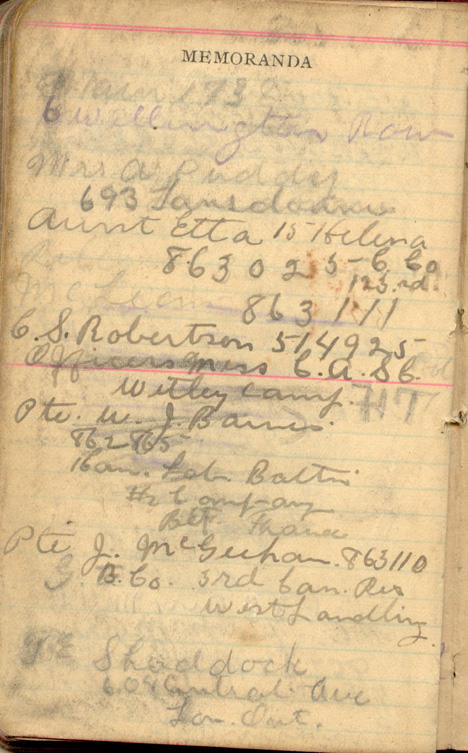 MEMORANDA
Wellington Row
Mrs A Puddy
693 Lansdowne
Aunt Etta 15 Helena
863025 C Co
123rd
McLean 863111
C. S. Robertson 514925
Officers Mess C.A.S.C.
Witley Camp.
Pte. W. J. Barnes.
862865
Can. Battn
#2 Company
France
Pte J. McGeehan. 863110
B. Co. 3rd Can. Res
West Sandling
Shaddock
604 Central Ave
Lon. Ont.